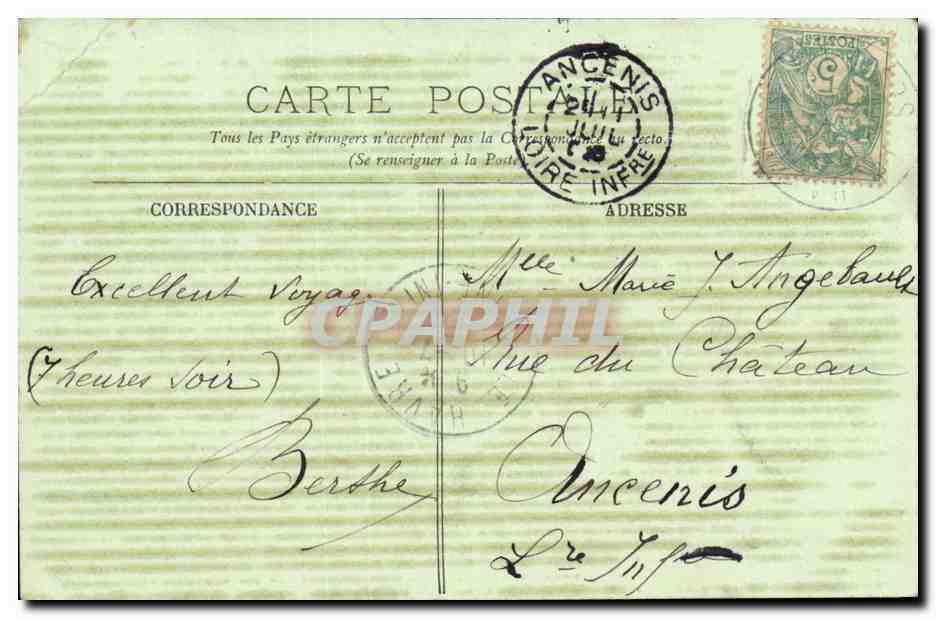 CARTE POSTALE
Tous les Pays étrangers n'acceptent pas la Correspondance au recto.
(Se renseigner à la Poste)
ANCENIS
JUIL
LOIRE INFRE
POSTES
5
CORRESPONDANCE
ADRESSE
Excellent voyage
(7 heures soir)
Berthe
Mlle Marie J. Angebault
Rue du Château
Ancenis
Lre Infre
HAVRE
CPAPHIL